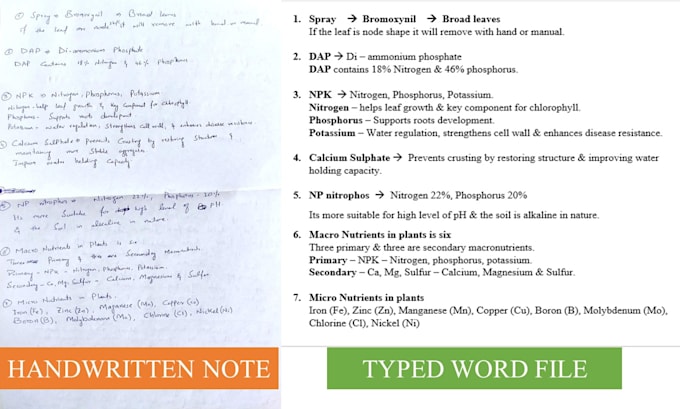 ① Spray → Bromoxynil → Broad leaves
If the leaf is node shape it will remove with hand or manual.
② DAP → Di-ammonium Phosphate
DAP Contains 18% nitrogen & 46% Phosphorus.
③ NPK → Nitrogen, Phosphorus, Potassium
Nitrogen - help leaf growth & key Component for Chlorophyll
Phosphorus - Supports roots development.
Potassium - water regulation, Strengthens cell wall, & enhances disease resistance
Calcium Sulphate → Prevents Crusting by restoring Structure &
maintaining more stable aggregates
Improve water holding Capacity
NP nitrophos → Nitrogen 22%, Phosphorus - 20%
Its more Suitable for high level of PH
& the Soil is alkaline in nature.
Macro Nutrients in Plants is Six
Three Primary & three are Secondary Macronutrients
Primary - NPK - Nitrogen, Phosphorus, Potassium.
Secondary - Ca, Mg, Sulfur - Calcium, Magnesium & Sulfur.
Micro Nutrients in Plants.
Iron (Fe), Zinc (Zn), Manganese (Mn), Copper (Cu)
Boron (B), Molybdenum (Mo), Chlorine (Cl), Nickel (Ni)
HANDWRITTEN NOTE
1. Spray → Bromoxynil → Broad leaves
If the leaf is node shape it will remove with hand or manual.
2. DAP → Di – ammonium phosphate
DAP contains 18% Nitrogen & 46% phosphorus.
3. NPK → Nitrogen, Phosphorus, Potassium.
Nitrogen – helps leaf growth & key component for chlorophyll.
Phosphorus – Supports roots development.
Potassium – Water regulation, strengthens cell wall & enhances disease resistance.
4. Calcium Sulphate → Prevents crusting by restoring structure & improving water
holding capacity.
5. NP nitrophos → Nitrogen 22%, Phosphorus 20%
Its more suitable for high level of pH & the soil is alkaline in nature.
6. Macro Nutrients in plants is six
Three primary & three are secondary macronutrients.
Primary – NPK – Nitrogen, phosphorus, potassium.
Secondary – Ca, Mg, Sulfur – Calcium, Magnesium & Sulfur.
7. Micro Nutrients in plants
Iron (Fe), Zinc (Zn), Manganese (Mn), Copper (Cu), Boron (B), Molybdenum (Mo),
Chlorine (Cl), Nickel (Ni)
TYPED WORD FILE